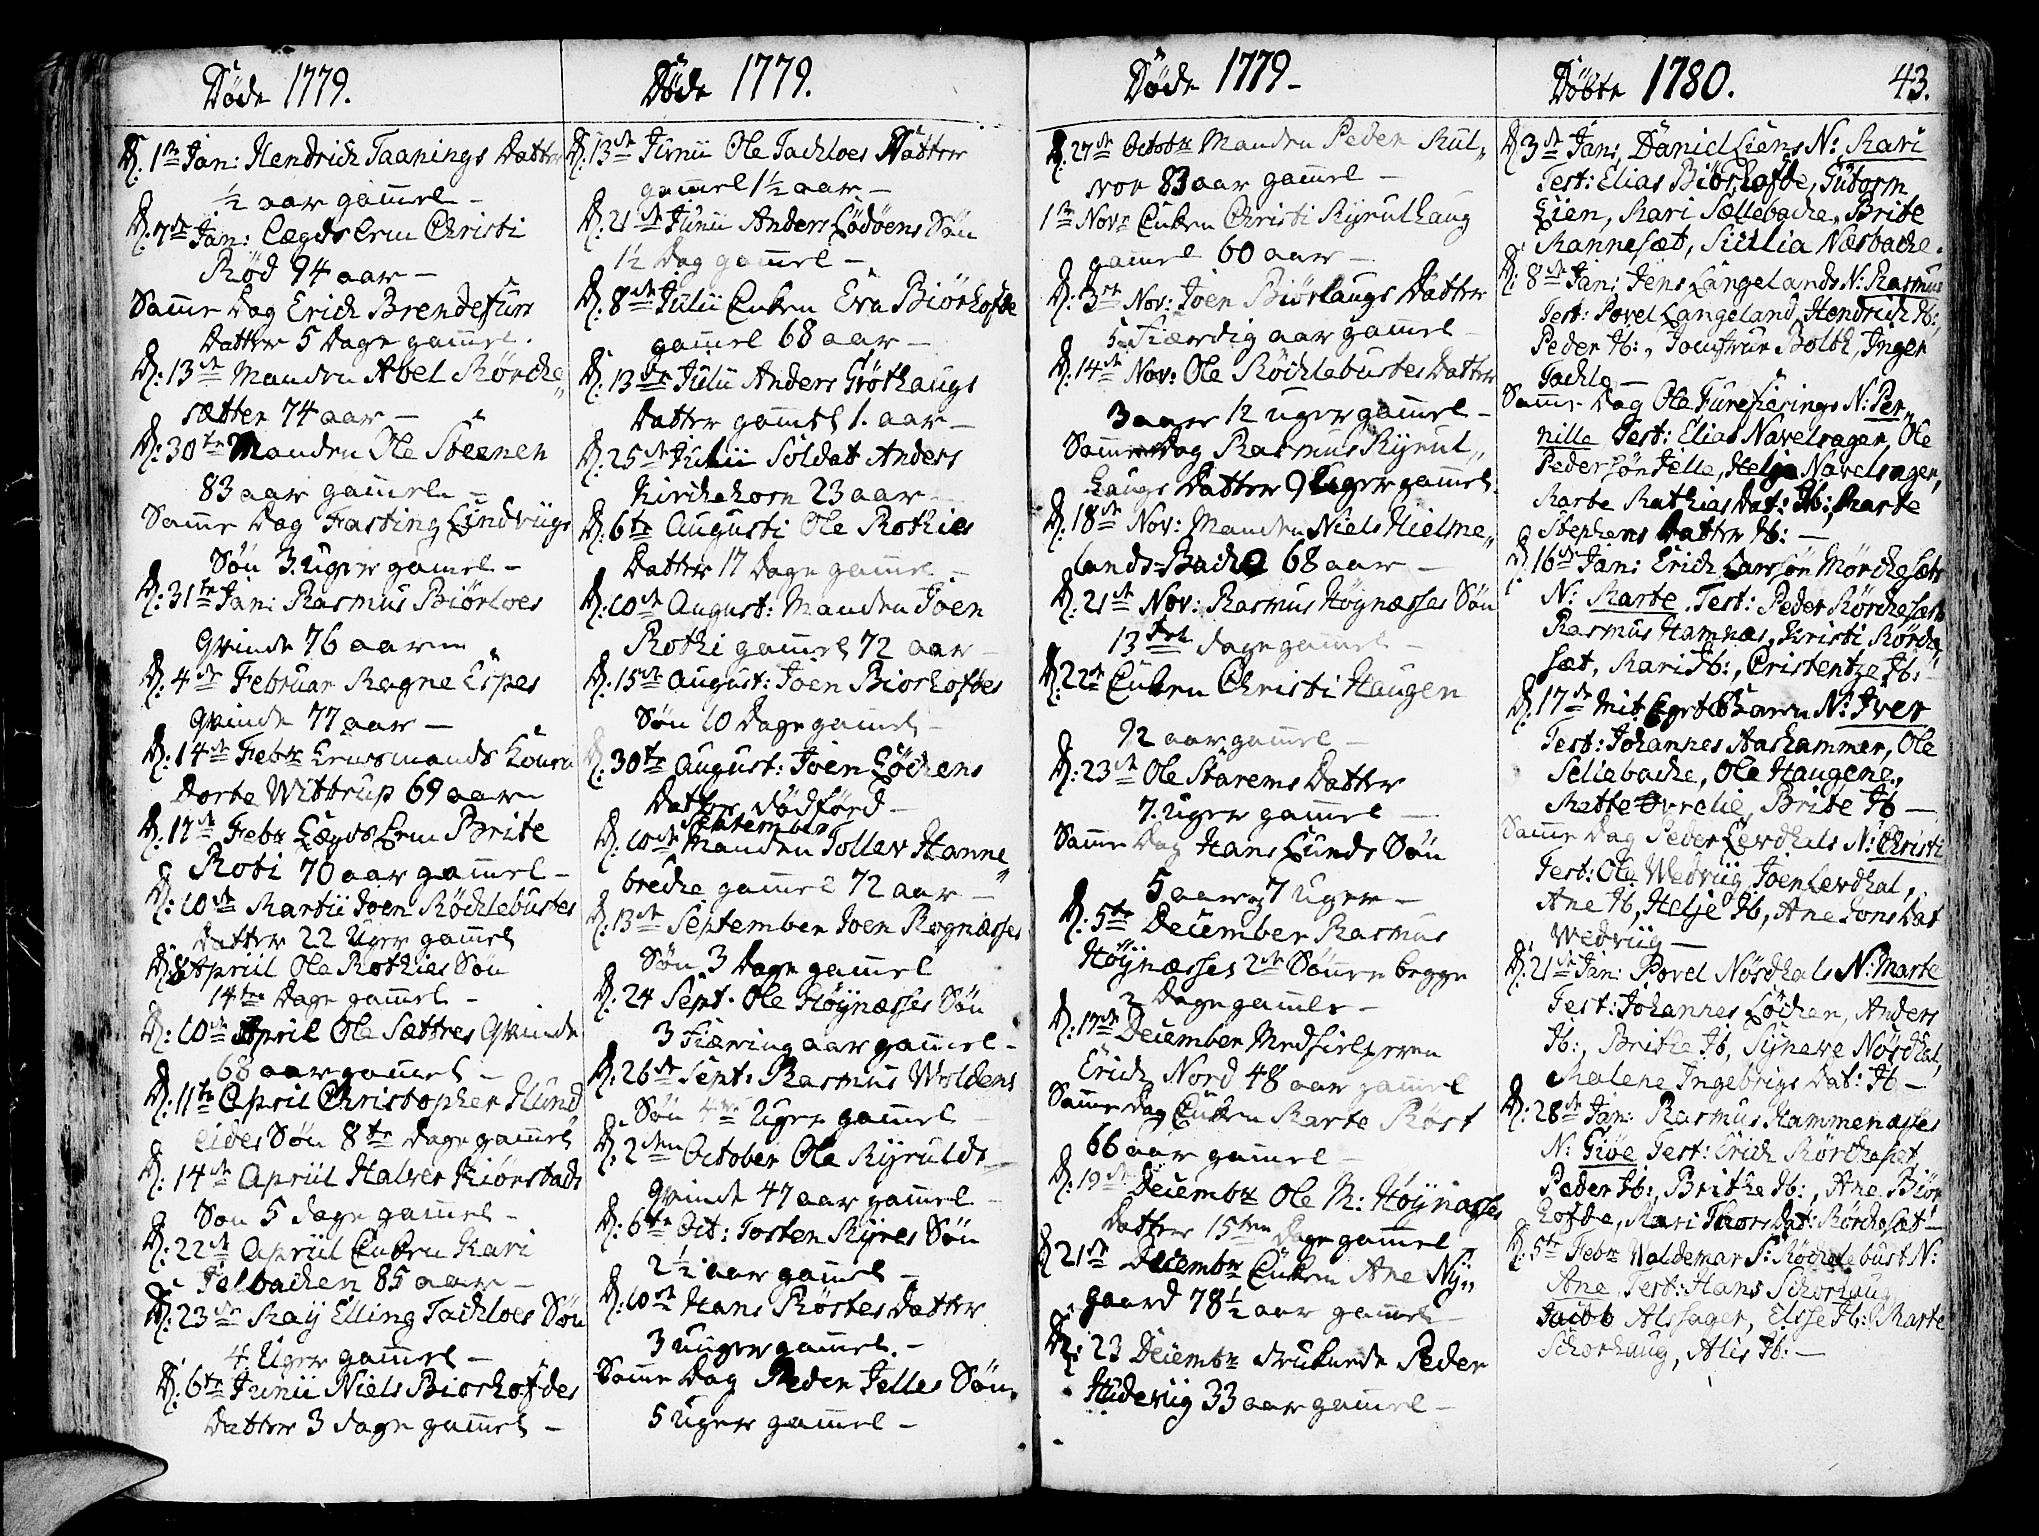 Døde 1779.
D. 1ste Jan: Hendrich Taanings Datter
½ aar gam̄el –
D. 7de Jan: Lægds Lem Christi
Rød 94 aar –
Sam̄e Dag Erich Brendefurs
Datter 5 Dage gam̄el.
D: 13de Manden Abel Mørche„
sætter 74 aar –
D: 30te Manden Ole Steenen
83 aar gam̄el –
Sam̄e Dag Fasting Lindviigs
Søn 3. Uger gam̄el –
D: 31te Jan: Rasmus Biørloes
Qvinde 76 aar
D: 4de Februar Magne Espes
Qvinde 77 aar –
D: 14de Febr: Lensmands Kone
Dorte Wittrup 69 aar
D: 17de Febr Lægds Lem Brite
Roti 70 aar gam̄el –
D: 10de Martii Joen Røchlebustes
Datter 22 Uger gam̄el
D. 8 Apriil Ole Rothies Søn
14ten Dage gam̄el –
D: 10de April Ole Sættres Qvinde
68 aar gam̄el –
D: 11te April Christopher Hund
eides Søn 8te Dage gam̄el
D: 14de Apriil Halver Kiørstads
Søn 5 Dage gam̄el –
D: 22de Apriil Enken Kari
Felbachen 85 aar –
D: 23de Maij Elling Tachloes Søn
4. Uger gam̄el –
D: 6te Junii Niels Biørhofdes
Datter 3 Dage gam̄el –
Døde 1779.
D. 13de Junii Ole Tachloes Datter
gam̄el 1½ aar –
D. 21de Junii Anders Lødøens Søn
1½ Dag gam̄el –
D. 8de Julii Enken Eva Biørhofde
gam̄el 68 aar –
D. 13de Julii Anders Grøthaugs
Datter gam̄el 1. aar –
D: 25de Julii Soldat Anders
Kirchehorn 23 aar –
D: 6te Augusti Ole Rothies
Datter 17 Dage gam̄el –
D: 10de August: Manden Joen
Rothi gam̄el 72 aar –
D: 15de August: Joen Biørhofdes
Søn 10 Dage gam̄el –
D: 30te August: Joen Løchens
Datter, dødførd –
September
D. 10de Manden Tollev Hanne„
breche gam̄el 72 aar –
D: 13de September Joen Rognæsses
Søn 3 Dage gam̄el
D. 24 Sept. Ole Høynæsses Søn
3 Fiæring aar gam̄el –
D: 26de Sept: Rasmus Woldens
Søn 4re Uger gam̄el –
D. 2den October Ole Ryrulds
Qvinde 47 aar gam̄el –
D: 6te Oct: Torsten Ryres Søn
2½ aar gam̄el –
D: 10de Hans Røstes Datter
3 Uger gam̄el. –
Sam̄e Dag Peder Jelles Søn
5 Uger gam̄el –
Døde 1779 –
D. 27de Octobr Manden Peder Kul„
von 83 aar gam̄el –
1ste Novr Enken Christi Ryrulhaug
gam̄el 60 aar –
D: 3de Nov: Joen Biørlaugs Datter
5 Fiærdig aar gam̄el
D: 14de Nov: Ole Røchlebustes Datter
3 aar 12 Uger gam̄el –
Sam̄e Dag Rasmus Ryrul„
haugs Datter 9 Uger gam̄el.
D: 18de Nov: Manden Niels Hielme„
lands-Bache 68 aar –
D: 21de Nov: Rasmus Høynæsses Søn
13 dage gam̄el –
D. 22de Enken Christi Haugen
92 aar gam̄el –
D: 23de Ole Starems Datter
7. Uger gam̄el –
Sam̄e Dag Hans Lunds Søn
5 aar og 7 Uger –
D: 5te December Rasmus
Høynæsses 2de Søn̄er begge
2 Dage gam̄le –
D: 17de December Medhielperen
Erich Nord 48 aar gam̄el
Sam̄e dag Enken Marte Røst
66 aar gam̄el –
D: 19de Decembr Ole M: Høynæsses
Datter 15ten Dage gam̄el
D 21de Decembr Enken Ane Ny„
gaard 78½ aar gam̄el –
D: 23 Decembr druknede Peder
Hudeviig 33 aar gam̄el –
Døbte 1780.
43.
D 3de Jan: Daniel Liens N: Kari
Test: Elias Biørhofde, Gutorm
Lien, Mari Sællebache, Brite
Mannesæt, Sicilia Næsbache.
D: 8de Jan: Jens Langelands N: Rasmus
Test: Povel Langeland, Hendrich Ib:
Peder Ib:, Joustrue Botth, Inger
Tachlo –
Sam̄e Dag Ole Furefiærings N: Per„
nille Test: Elias Navelsager, Ole
Pedersøn Jelle, Helje Navelsager,
Marte Mathias Dat: Ib:, Marte
Stephens Datter Ib: –
D 16de Jan: Erich Larssøn Mørchesæts
N: Marte. Test: Peder Mørchesæt
Rasmus Hamnæs, Kristi Mørche„
sæt, Mari Ib:, Cristentze Ib: –
D: 17de Mit eget Barn N: Iver
Test: Johannes Aashammer, Ole
Seliebache, Ole Haugene,
Mette Øvrelie, Brite Ib –
Sam̄e Dag Peder Levdhals N: Christi
Test: Ole Wedviig, Joen Levdhal,
Ane Ib, Helje Ib, Ane Jons Dat
Wedviig –
D: 21de Jan: Povel Nørdhals N: Marte
Test: Johannes Løchen, Anders
Ib:, Brithe Ib, Syneve Nørdhal,
Malene Ingebrigs Dat: Ib –
D: 28de Jan: Rasmus Hammenæsses
N: Giøe Test: Erich Mørchesæt
Peder Ib:, Brithe Ib:, Ane Biør
hofde, Mari Thors Dat: Mørchesæt –
D: 5te Febr Waldemar S: Røchlebust N:
Ane Test: Hans Schorhaug
Jacob Alssager, Elsse Ib: Marte
Schorhaug, Alis Ib: –